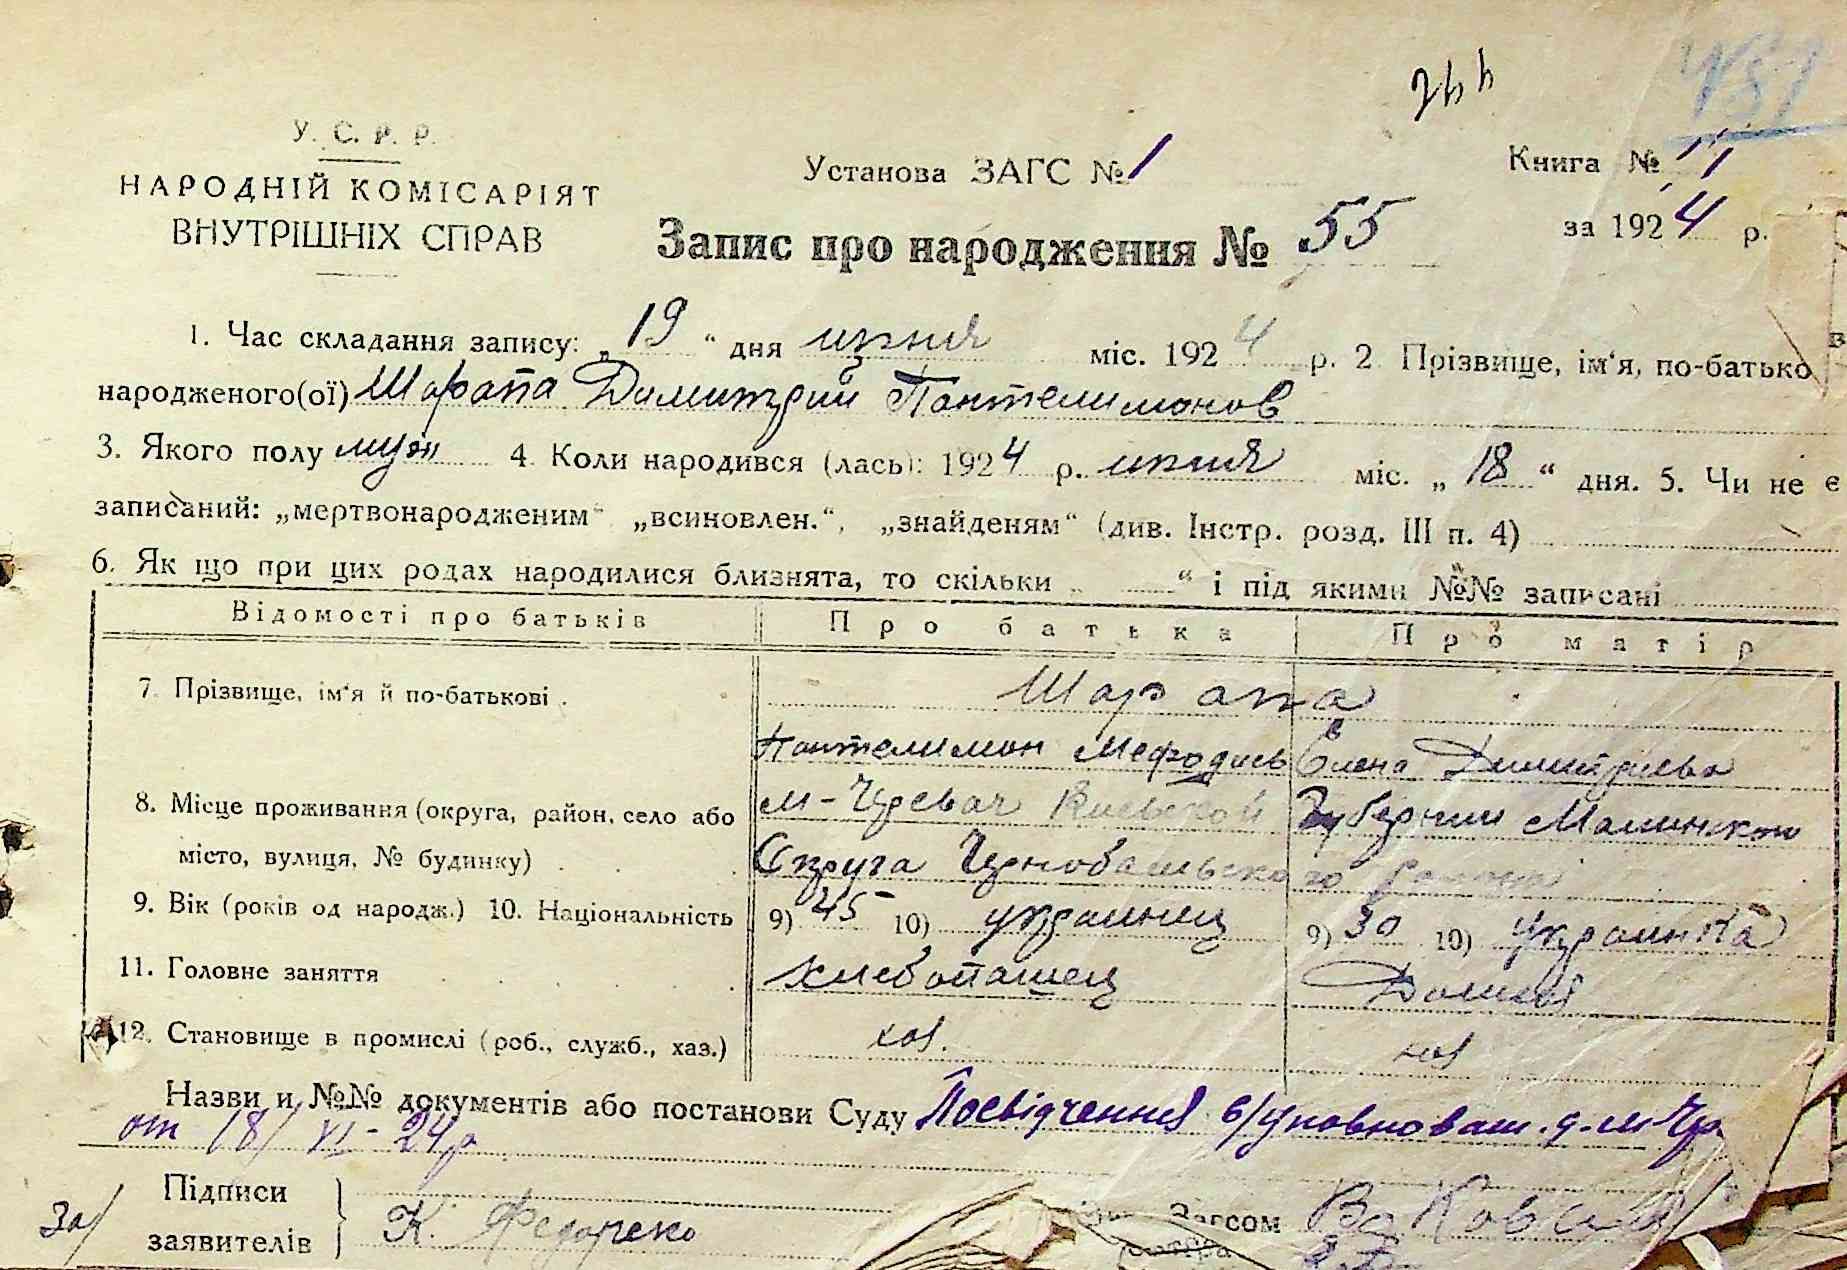 244
У. С. Р. Р.
НАРОДНІЙ КОМІСАРІЯТ
ВНУТРІШНІХ СПРАВ
Установа ЗАГС № 1
Книга №
за 1924 р.
Запис про народження № 55
1. Час складання запису: „ 19 “ дня июня міс. 1924 р. 2 Прізвище, ім‘я, по-батько
народженого(ої) Шарапа Димитрий Пантелимонов
3. Якого полу муж 4. Коли народився (лась): 1924 р. июня міс. „ 18 “ дня. 5. Чи не є
записаний: „мертвонародженим“ „всиновлен.“, „знайденям“ (див. Інстр. розд. III п. 4)
6. Як що при цих родах народилися близнята, то скільки „ “ і під якими №№ записані
Відомості про батьків Про батька Про матір
7. Прізвище, ім‘я й по-батькові . Шарапа
Пантелимон Мефодиев Елена Димитриева
8. Місце проживання (округа, район, село або м- Киевской Губернии Малинской
місто, вулиця, № будинку) Округа района
9. Вік (років од народж.) 10. Національність 9) 45 10) украинец 9) 30 10) Украинка
11. Головне заняття хлебопашец Домаш
12. Становище в промислі (роб., служб., хаз.) хоз. хоз
Назви и №№ документів або постанови Суду Посвідчення с/уповноваж. д. м
от 18/VI-24р
Підписи
заявителів
За/ К. Федоренко
Загсом